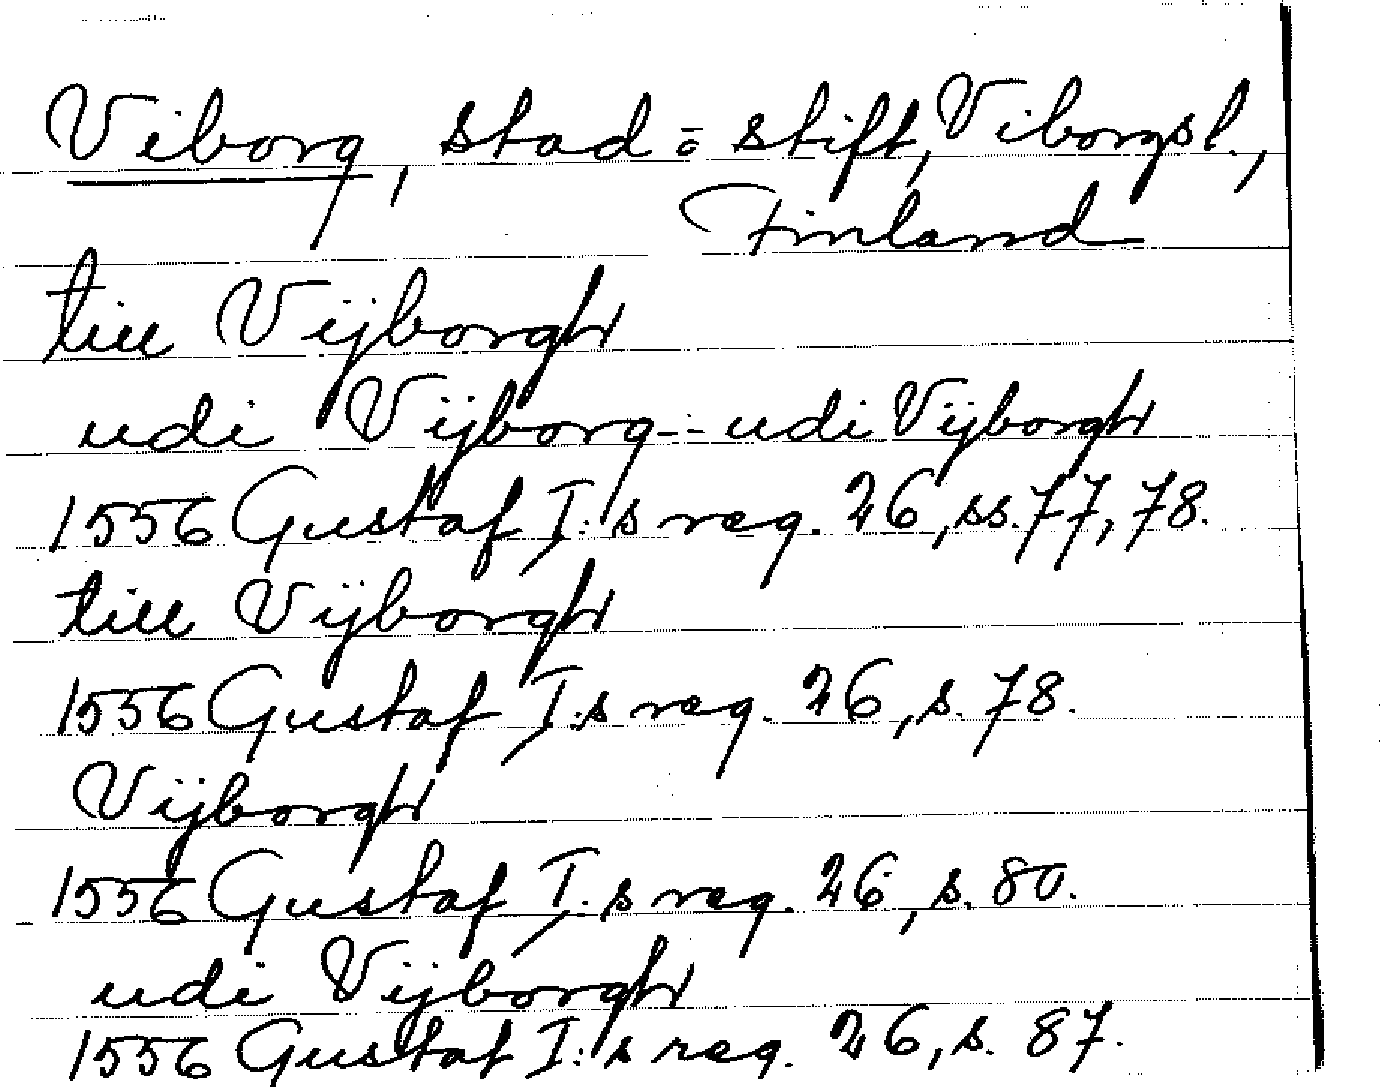 Viborg, stad = stift, Viborgsl.,
Finland
till Vijborgh
udi Vijborg -- udi Vijborgh
1556 Gustaf I:s reg. 26, ss. 77, 78.
till Vijborgh
1556 Gustaf I:s reg. 26, s. 78.
Vijborgh
1556 Gustaf I:s reg. 26, s. 80.
udi Vijborgh
1556 Gustaf I:s reg. 26, s. 87.